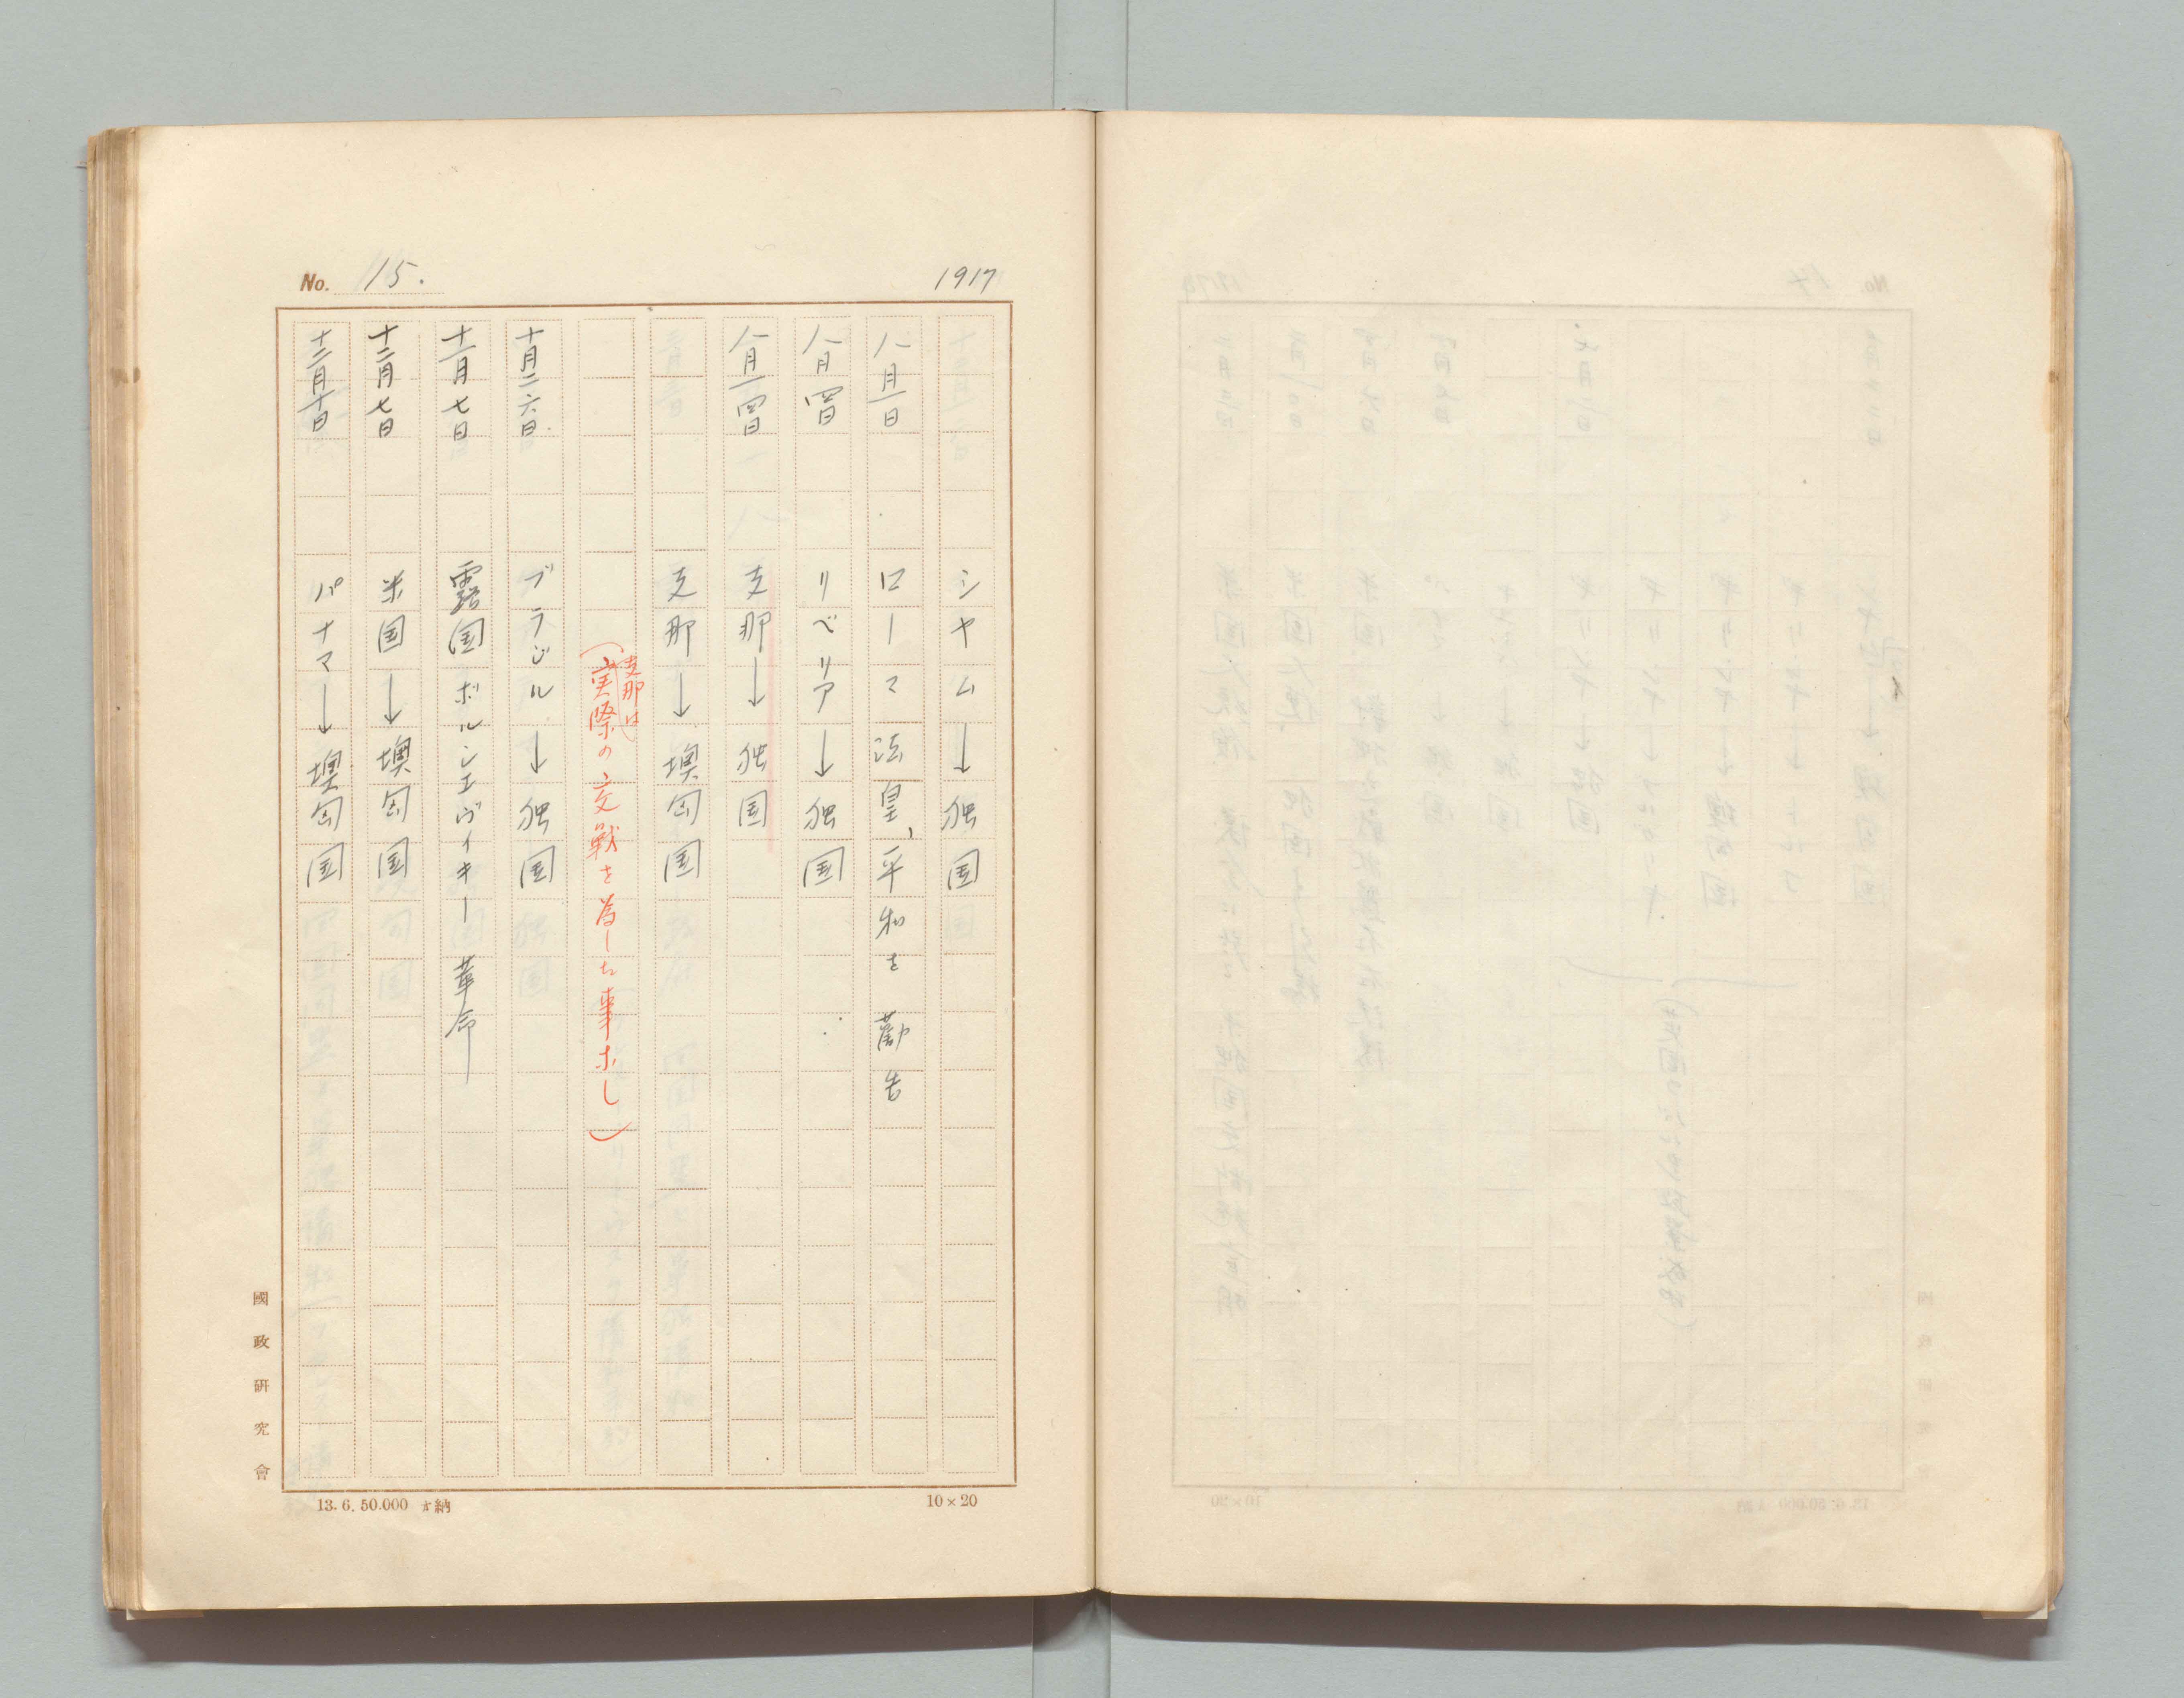 No. 15.
1917
シヤム→独国
八月一日 ローマ法皇、平和を勧告
八月四日 リベリア→独国
八月一四日 支那→独国
支那→墺匈国
支那は
(実際の交戦を為した事なし)
十月二六日 ブラジル→独国
十一月七日 露国ボルシエヴイキー革命
十二月七日 米国→墺匈国
十二月十日 パナマ→墺匈国
國政研究會
13. 6. 50.000 納
10×20